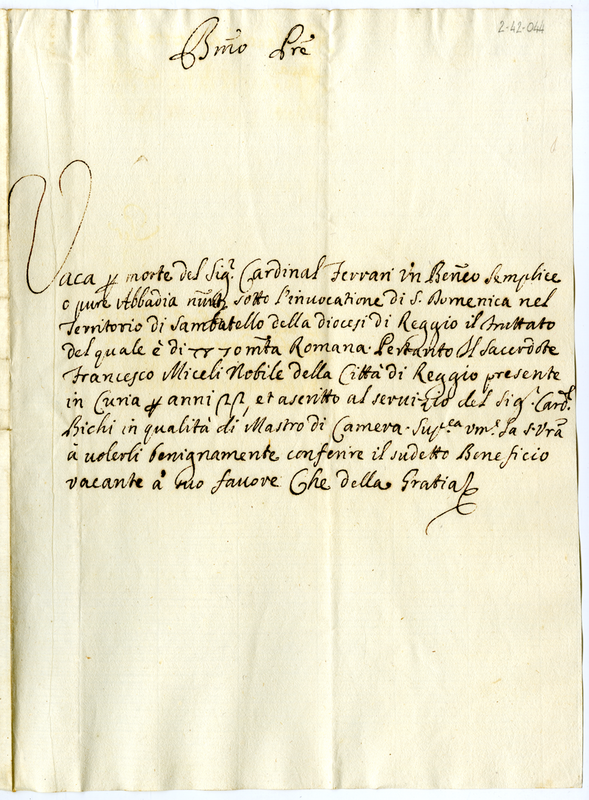 2-42-044
Bmo Pre
Vaca p morte del Sigr. Cardinal Ferrari un Beneo semplice
o pure Abbadia sotto l'invocatione di S. Domenica nel
Territorio di Sambatello della diocesi di Reggio il fruttato
del quale è di 70 mta Romana. Pertanto il Sacerdote
Francesco Miceli Nobile della Città di Reggio presente
in Curia p anni et ascritto al servizio del Sigr. Cardl.
Bichi in qualità di Mastro di Camera. Supca vme la s. Vra
à volerli benignamente conferire il sudetto Beneficio
vacante à suo favore Che della Gratia